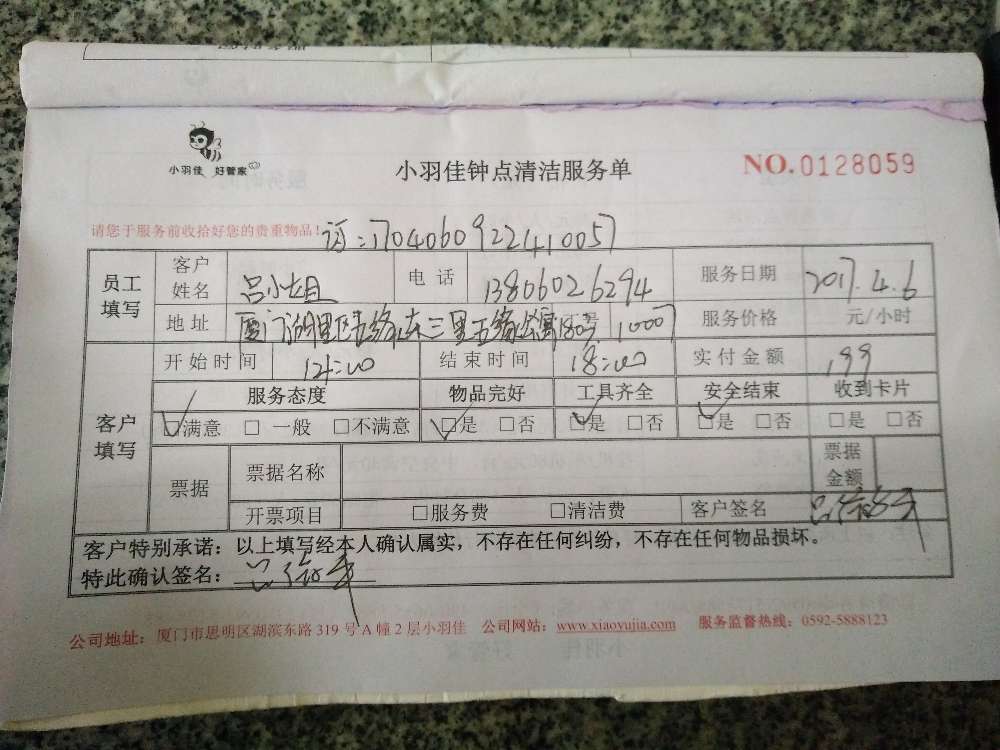 小羽佳 好管家
小羽佳钟点清洁服务单
NO.0128059
请您于服务前收拾好您的贵重物品!
订:17040609224410057
员工填写 客户姓名 吕小姐 电话 13806026294 服务日期 2017.4.6
地址 厦门湖里区五缘东三里五缘公寓180号1000 服务价格 元/小时
客户填写 开始时间 14:00 结束时间 18:00 实付金额 199
服务态度 物品完好 工具齐全 安全结束 收到卡片
☑满意 □一般 □不满意 ☑是 □否 ☑是 □否 ☑是 □否 □是 □否
票据 票据名称 票据金额
开票项目 □服务费 □清洁费 客户签名 吕
客户特别承诺:以上填写经本人确认属实,不存在任何纠纷,不存在任何物品损坏。
特此确认签名:吕
公司地址:厦门市思明区湖滨东路 319 号 A 幢 2 层小羽佳 公司网站:www.xiaoyujia.com 服务监督热线:0592-5888123